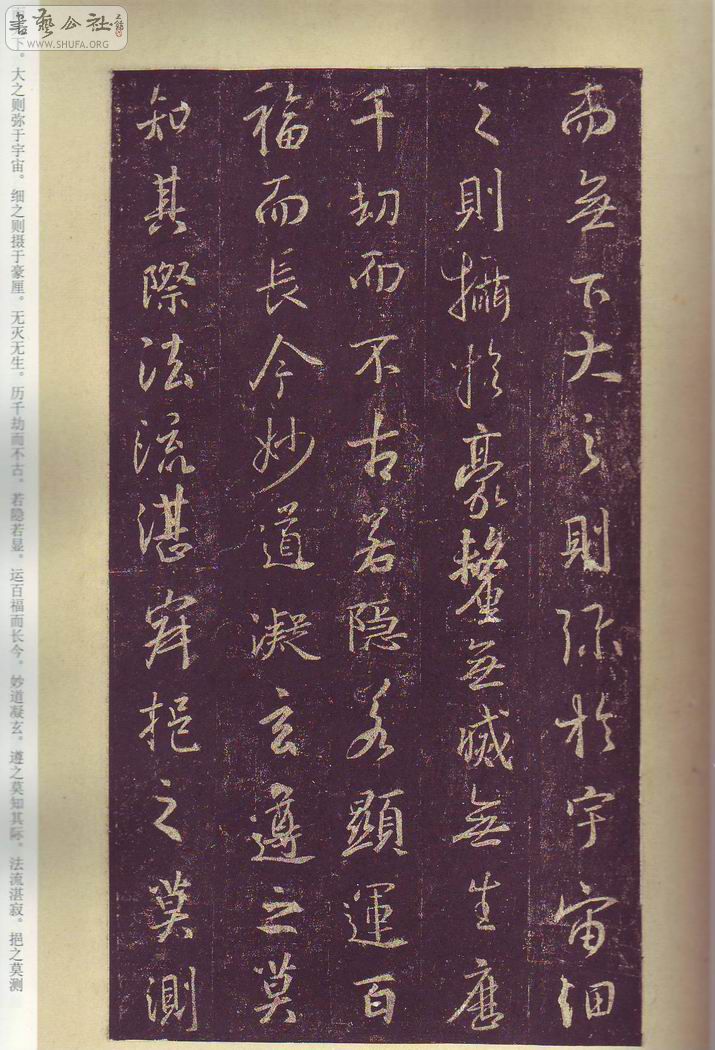 書藝公社
WWW.SHUFA.ORG
而無下大之則弥於宇宙細
之則攝於豪釐無滅無生歷
千劫而不古若隐若顯運百
福而長今妙道凝玄遵之莫
知其際法流湛寂挹之莫測
下。大之则弥于宇宙。细之则摄于豪厘。无灭无生。历千劫而不古。若隐若显。运百福而长今。妙道凝玄。遵之莫知其际。法流湛寂。挹之莫测